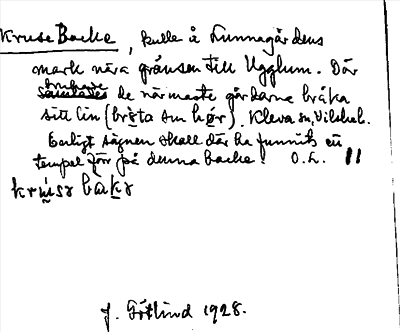 Kruse Backe, kulle å Lunnagårdens
mark nära gränsen till Ugglum. Där
brukade
de närmaste gårdarna bråka
sitt lin (bròta sm hør). Kleva sn, Vilske h.
Enligt sägnen skall där ha funnits ett
tempel förr på denna backe. O. L. 11
krùsə bàkə
J. Götlind 1928.